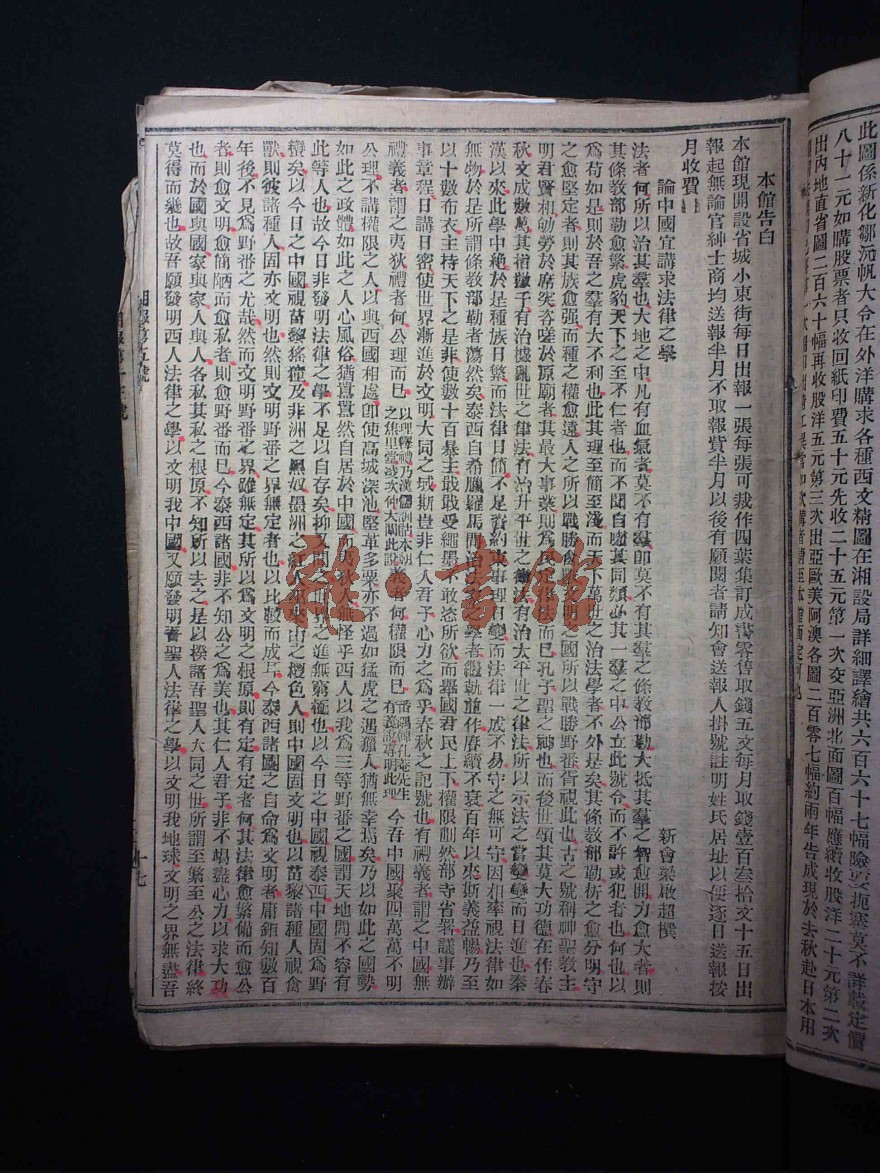 此圖係新化鄒沅帆大令在外洋購求各種西文精圖在湘設局詳細譯繪共六百六十七幅險要扼塞莫不詳載定價
八十一元如購股票者只收回紙印費五十元先收二十五元第一次交亞洲北面圖百幅應續收股洋二十元第二次
出內地直省圖二百六十幅再收股洋五元第三次出亞歐美阿澳各圖二百零七幅約兩年告成現於去秋赴日本用
本館告白
本館現開設省城小東街每日出報一張每張可裁作四葉集訂成書零售取錢五文每月取錢壹百叁拾文十五日出
報起無論官紳士商均送報半月不取報貲半月以後有願閱者請知會送報人掛號註明姓氏居址以便逐日送報按
月收費
論中國宜講求法律之學 新會梁啟超撰
法者何所以治其羣也大地之中凡有血氣者莫不有羣即莫不有其羣之條教部勒大抵其羣之智愈開力愈大者則
其條教部勒愈繁虎豹天下之至不仁者也而不聞自噬其同類必其一羣之中公立此號令而不許或犯者也何也以
爲苟如是則於吾之羣有大不利也此其理至簡至淺而天下萬世之治法學者不外是矣其條教部勒析之愈分明守
之愈堅定者則其族愈强而種之權愈遠人之所以戰勝禽獸文明之國所以戰勝野番胥視此也古之號稱神聖教主
明君賢相劬勞於席突咨嗟於原廟者其最大事業則爲民定律法而已孔子聖之神也而後世頌其莫大功德在作春
秋文成數萬其指數千有治據亂世之律法有治升平世之律法有治太平世之律法所以示法之當變變而日進也秦
漢以來此學中絶於是種族日繁而法律日簡不足資約束事理日變而法律一成不易守之無可守因相率視法律如
無物於是所謂條教部勒者蕩然矣泰西自希臘羅馬間治法家之學者繼軌並作賡續不衰百年以來斯義益暢乃至
以十數布衣主持天下之是非使數十百暴主戢戢受繩墨不敢恣所欲而舉國君民上下權限劃然部寺省署議事辦
事章程日講日密使世界漸進於文明大同之域斯豈非仁人君子心力之爲乎春秋之記號也有禮義者謂之中國無
禮義者謂之夷狄禮者何公理而已以理釋禮乃漢儒訓詁本朝之焦里堂凌次仲大闡此說義者何權限而已番禺韓孔菴先生有義說專明此理今吾中國聚四萬萬不明
公理不講權限之人以與西國相處即使高城深池堅革多粟亦不過如猛虎之遇獵人猶無幸焉矣乃以如此之國勢
如此之政體如此之人心風俗猶囂囂然自居於中國而夷狄人無怪乎西人以我爲三等野番之國謂天地間不容有
此等人也故今日非發明法律之學不足以自存矣抑又聞之世界之進無窮極也以今日之中國視泰西中國固爲野
蠻矣以今日之中國視苗黎猺獞及非洲之黑奴墨洲之紅人巫來由之椶色人則中國固文明也以苗黎諸種人視禽
獸則彼諸種人固亦文明也然則文明野番之界無定者也以比較而成耳今泰西諸國之自命爲文明者庸詎知數百
年後不見爲野番之尤哉然而文明野番之界雖無定其所以爲文明之根原則有定有定者何其法律愈繁備而愈公
者則愈文明愈簡陋而愈私者則愈野番而已今泰西諸國非不知公之爲美也其仁人君子非不竭盡心力以求大功
也而於國與國家與家人與人各私其私之根原不知所以去之是以揆諸吾聖人大同之世所謂至繁至公之法律終
莫得而幾也故吾願發明西人法律之學以文明我中國又願發明吾聖人法律之學以文明我地球文明之界無盡吾
十七
雜·書館